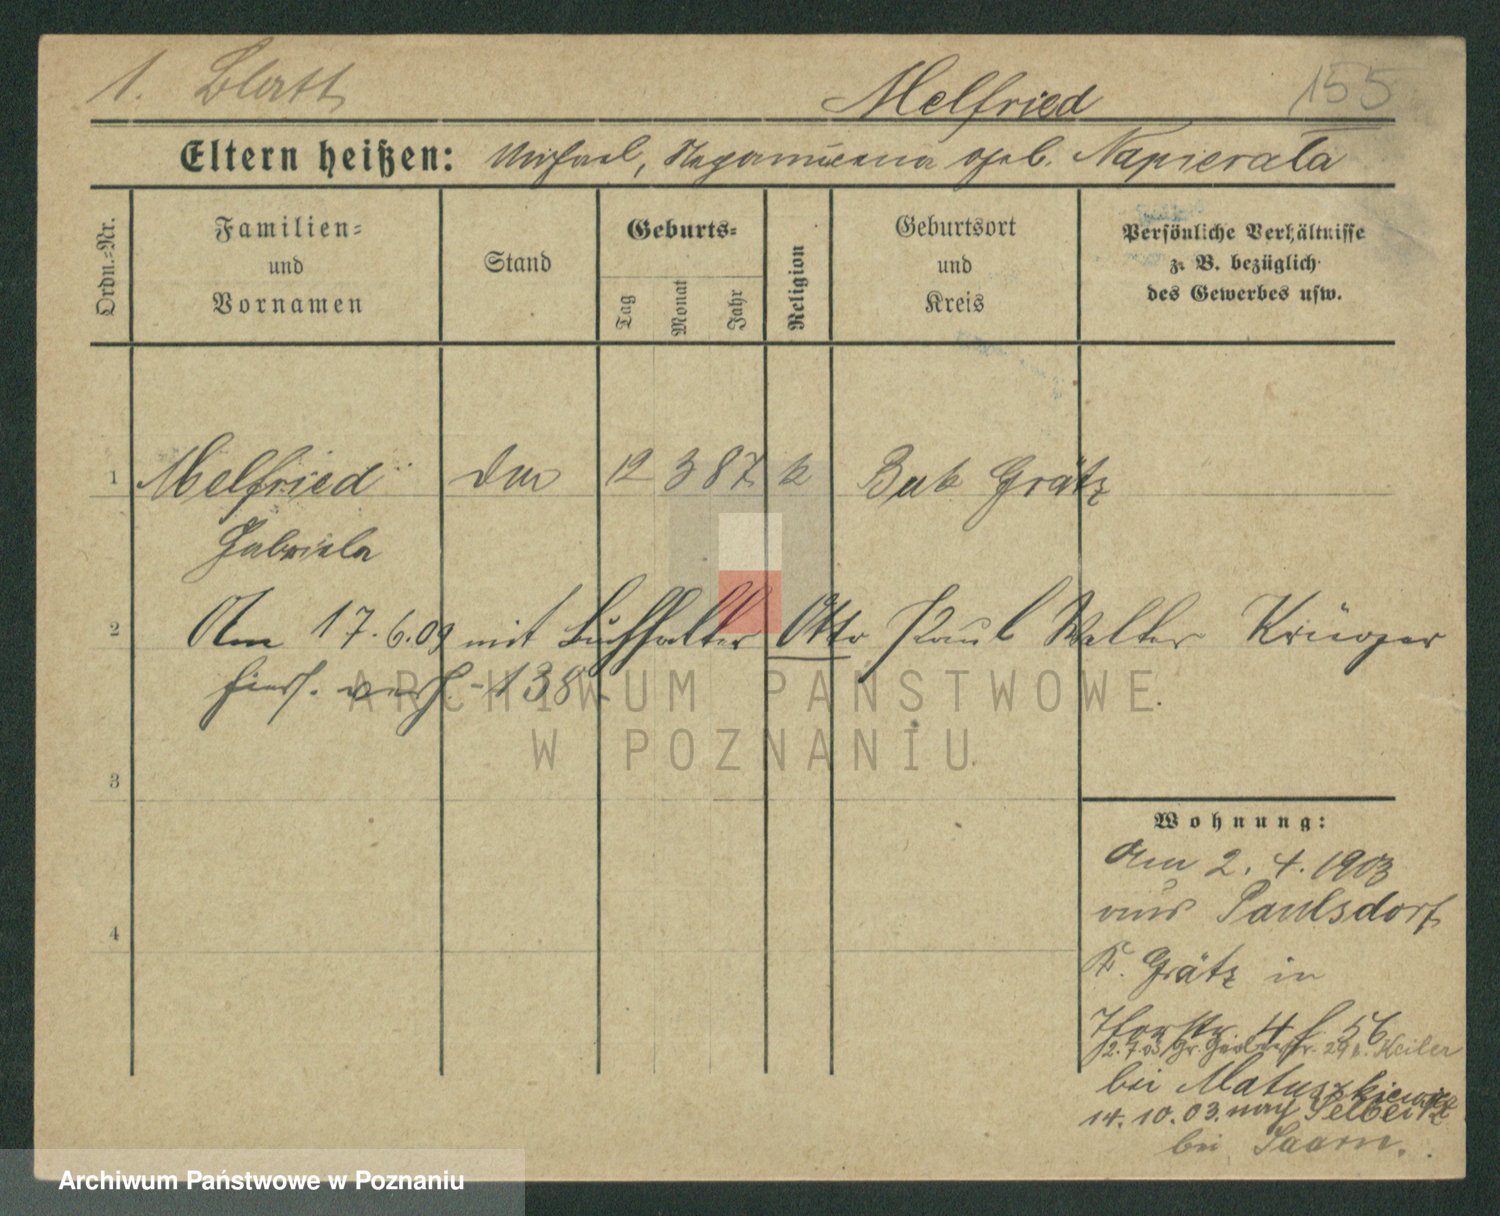 1. Blatt
Melfried
155
Eltern heißen: Michael, Nepomucena geb. Napierala
Ordn.-Nr.
Familien-
und
Vornamen
Stand
Geburts-
Tag
Monat
Jahr
Religion
Geburtsort
und
Kreis
Persönliche Verhältnisse
z. B. bezüglich
des Gewerbes usw.
1 Melfried 12 3 87 k Buk Grätz
Gabriela
2 Am 17.6.09 mit Buchhalter Otto Paul Walter Krüger
hiers. verh. -138-
3
4
Wohnung:
Am 2. 4. 1903
aus Paulsdorf
K. Grätz in
Thorstr. 4 f 56
12.7.03 Gr. 29 b. Keiler
bei Matuszkiewicz
14. 10. 03. nach
bei
ARCHIWUM PAŃSTWOWE
W POZNANIU
Archiwum Państwowe w Poznaniu